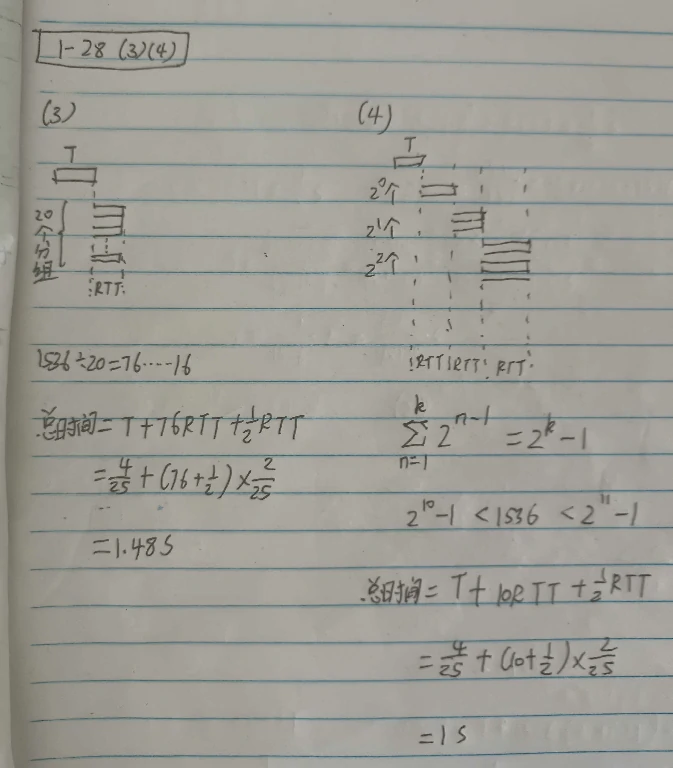 1-28 (3)(4)
(3)
T
20个分组
RTT
1536÷20=76……16
总时间=T+76RTT+½RTT
=4/25+(76+½)×2/25
=1.48S
(4)
T
2⁰个
2¹个
2²个
RTT RTT RTT
k
∑ 2ⁿ⁻¹ = 2ᵏ-1
n=1
2¹⁰-1 <1536 <2¹¹-1
总时间=T+10RTT+½RTT
=4/25+(10+½)×2/25
=1S